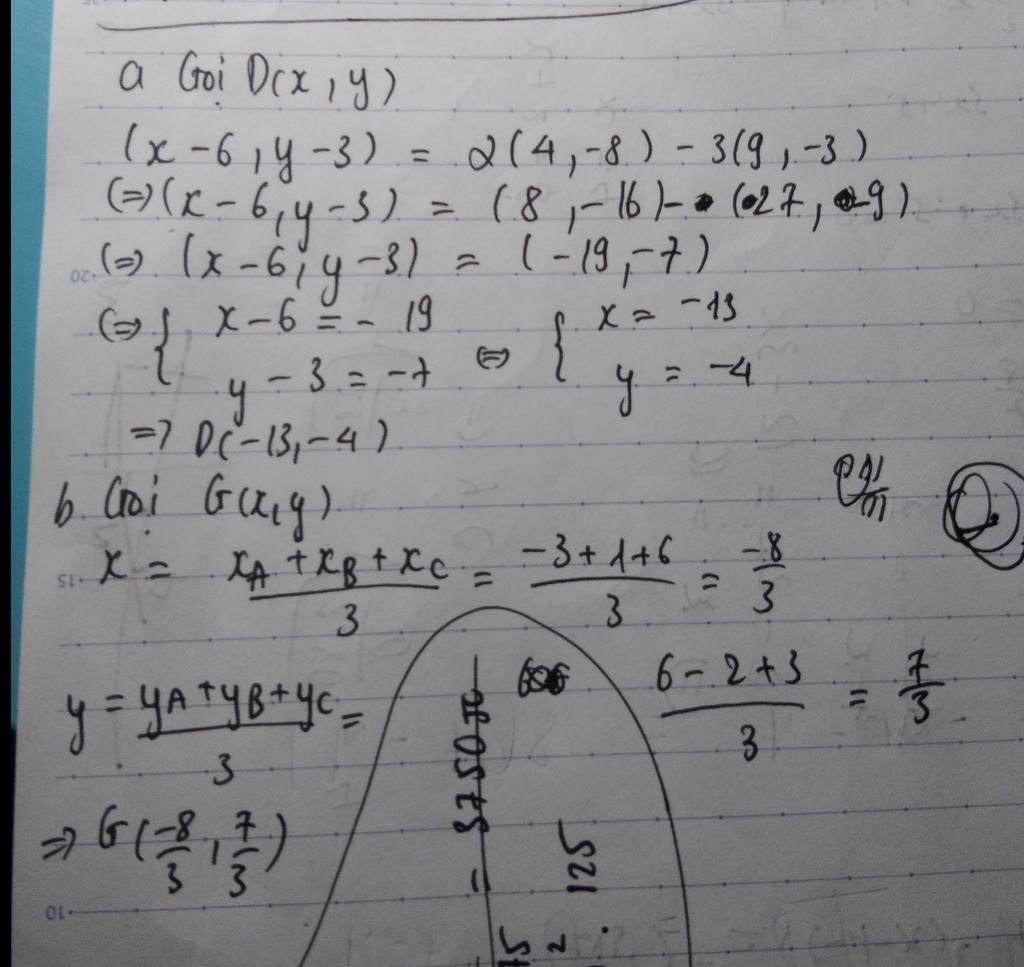 a Gọi D(x, y)
(x-6, y-3) = 2(4,-8) - 3(9,-3)
(=) (x-6, y-3) = (8,-16) - (27, -9)
(=) (x-6, y-3) = (-19,-7)
(=) { x-6 = -19 (=) { x = -13
y-3 = -7 y = -4
=> D(-13,-4)
b. Gọi G(x,y)
x = \frac{x_A + x_B + x_C}{3} = \frac{-3+1+6}{3} = \frac{-8}{3}
y = \frac{y_A + y_B + y_C}{3} = \frac{6-2+3}{3} = \frac{7}{3}
=> G(\frac{-8}{3}, \frac{7}{3})
= 3750
125
20
15
10